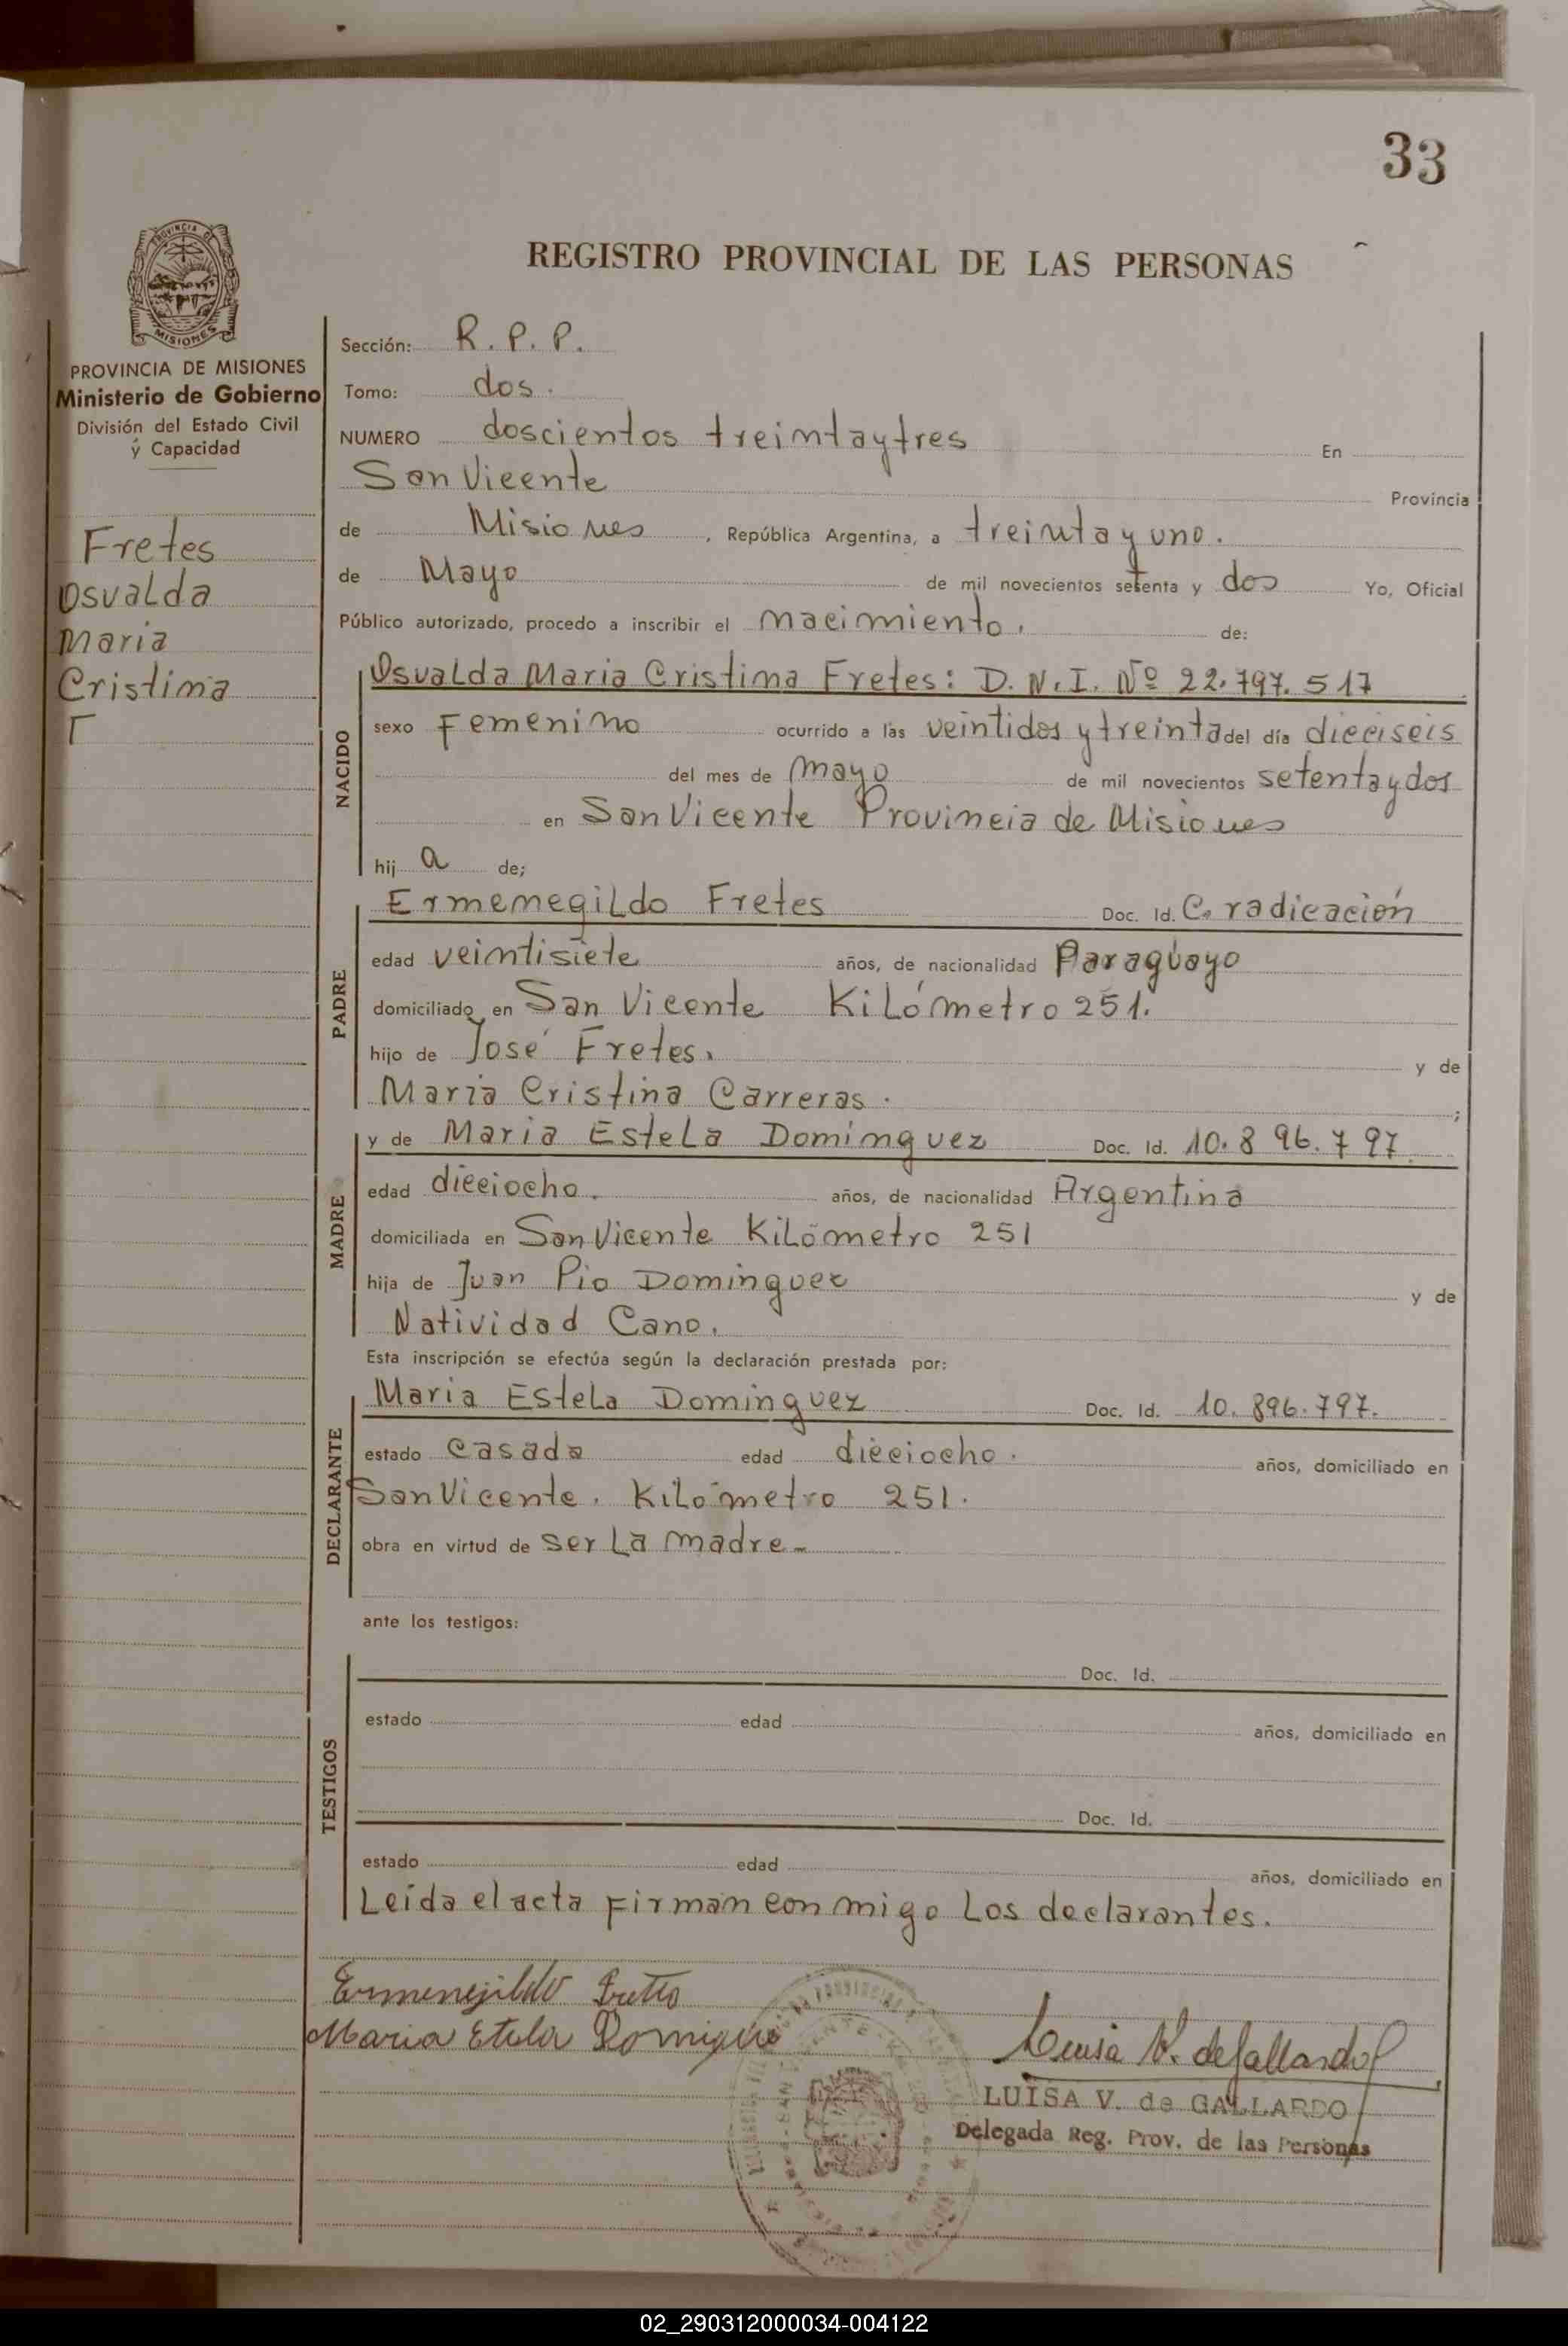 33
REGISTRO PROVINCIAL DE LAS PERSONAS
PROVINCIA DE MISIONES
PROVINCIA DE MISIONES
Ministerio de Gobierno
División del Estado Civil
y Capacidad
Fretes
Osvalda
Maria
Cristina
F
Sección: R. P. P.
Tomo: dos.
NUMERO doscientos treintaytres En
San Vicente Provincia
de Misiones, República Argentina, a treinta y uno.
de Mayo de mil novecientos setenta y dos Yo, Oficial
Público autorizado, procedo a inscribir el nacimiento. de:
NACIDO
Osvalda Maria Cristina Fretes: D. N. I. Nº 22.797.517
sexo Femenino ocurrido a las veintidos y treinta del día dieciseis
del mes de mayo de mil novecientos setenta y dos
en San Vicente Provincia de Misiones
hij a de;
PADRE
Ermenegildo Fretes Doc. Id. C. radicación
edad veintisiete años, de nacionalidad Paraguayo
domiciliado en San Vicente Kilómetro 251.
hijo de José Fretes. y de
Maria Cristina Carreras. ;
MADRE
y de Maria Estela Dominguez Doc. Id. 10.896.797.
edad dieciocho. años, de nacionalidad Argentina
domiciliada en San Vicente Kilómetro 251
hija de Juan Pio Dominguez y de
Natividad Cano.
Esta inscripción se efectúa según la declaración prestada por:
DECLARANTE
Maria Estela Dominguez Doc. Id. 10.896.797.
estado casada edad dieciocho. años, domiciliado en
San Vicente. Kilómetro 251.
obra en virtud de ser la madre-
ante los testigos:
TESTIGOS
Doc. Id.
estado edad años, domiciliado en
Doc. Id.
estado edad años, domiciliado en
Leída el acta firman conmigo los declarantes.
Ermenejildo Fretes
Maria Estela Dominguez
Luisa V. de Gallardo
LUISA V. de GALLARDO
Delegada Reg. Prov. de las Personas
02_290312000034-004122